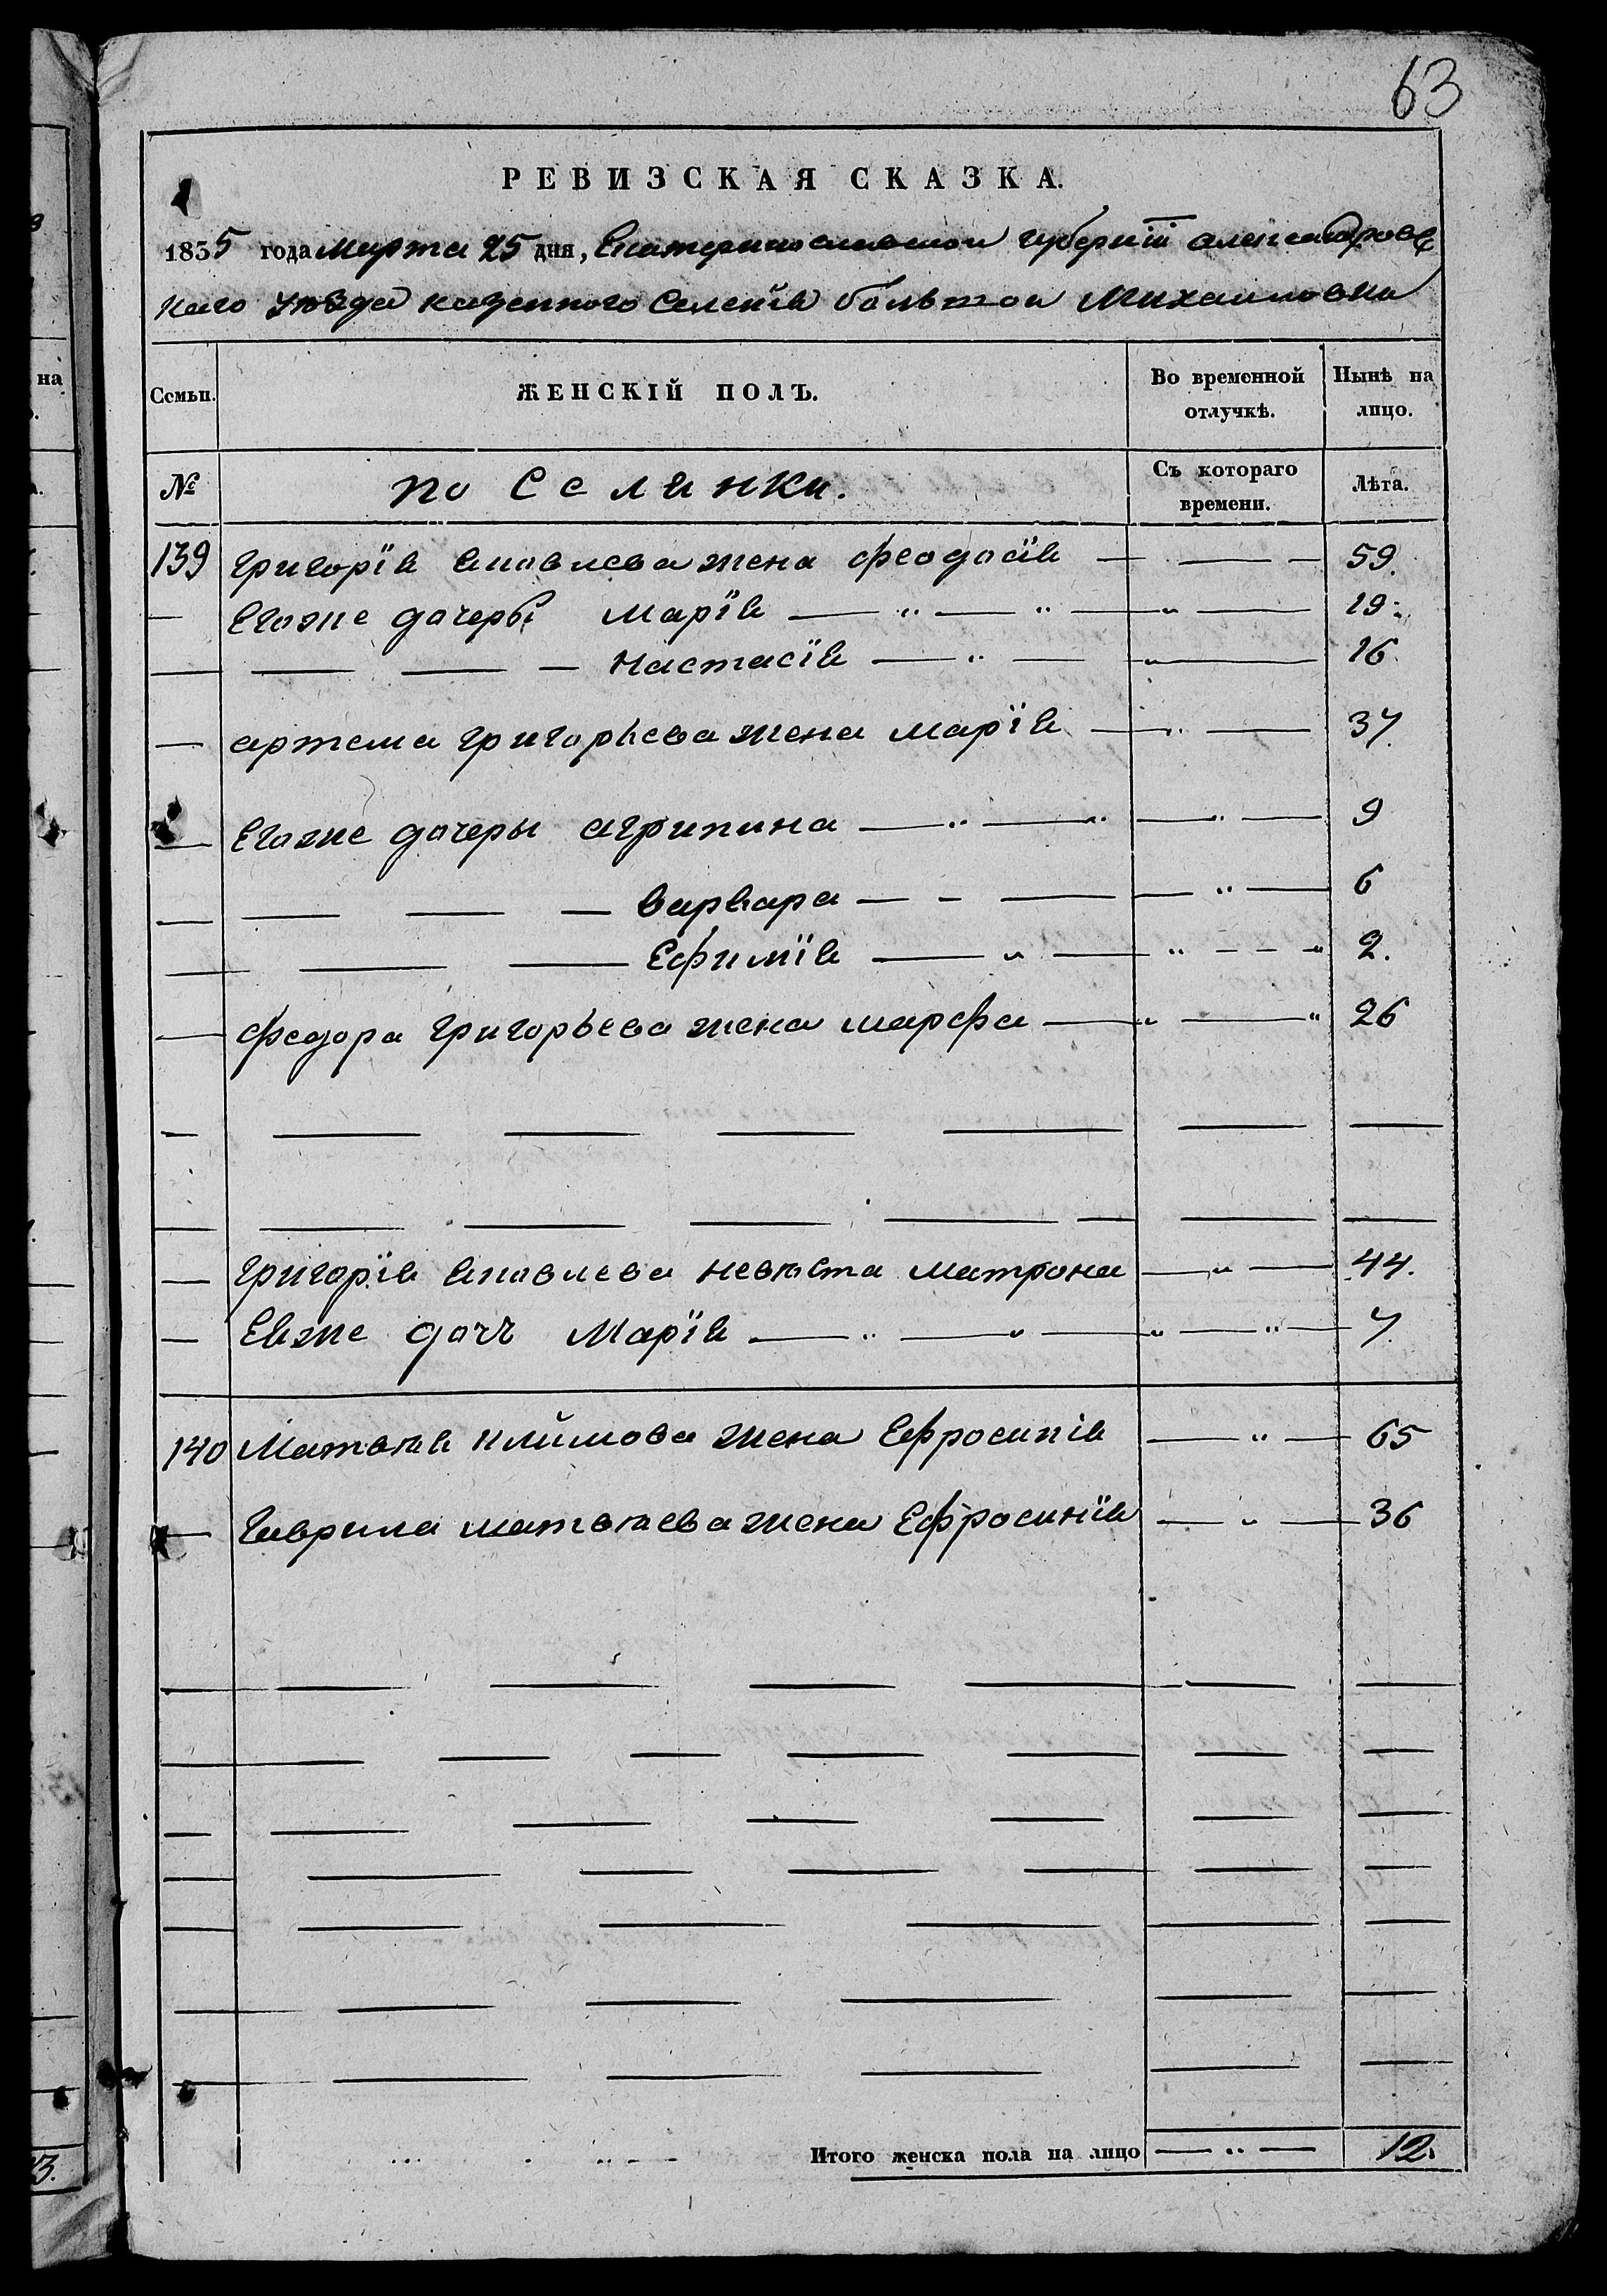 63
РЕВИЗСКАЯ СКАЗКА.
1835 года марта 25 дня, Екатеринославской губерніи александровс
каго уѣзда казенного Селенія большой Михайловки
Семьи. ЖЕНСКІЙ ПОЛЪ. Во временной отлучкѣ. Нынѣ на лицо.
№ поселянки. Съ котораго времени. Лѣта.
139 григорія яковлева жена феодосія — — — 59.
— Егоже дочеры марія — " — " — " — 19.
— — — — настасія — " — " — 16.
— артема григорьева жена марія — " — 37.
— Егоже дочеры агрипина — " — " — " — 9
— — — — варвара — - — — " — 6
— — — Ефимія — " — " - - - " 2.
— федора григорьева жена марфа — " — " 26
— — — — — — —
— — — — — — — —
— григорія яковлева невѣста матрона — " — 44.
— Еяже дочь Марія — " — " — " — " — 7.
140 Матвѣя климова жена Ефросинія — " — 65
— гаврила матвѣева жена Ефросинія — " — 36
— — — — — — —
— — — — — — — —
— — — — — — —
— — — — — — —
— — — — — —
— — — — — —
— — — — — —
Итого женска пола на лицо — " — 12.